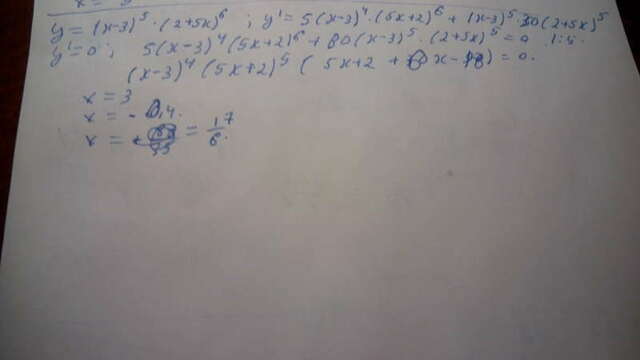 y = (x-3)^5 · (2+5x)^6 ; y' = 5(x-3)^4 · (5x+2)^6 + (x-3)^5 · 30(2+5x)^5
y' = 0 ; 5(x-3)^4 (5x+2)^6 + 80(x-3)^5 · (2+5x)^5 = 0 | : 5
(x-3)^4 (5x+2)^5 ( 5x+2 + x - ) = 0.
x = 3
x = - 0,4.
x = = 17/6.